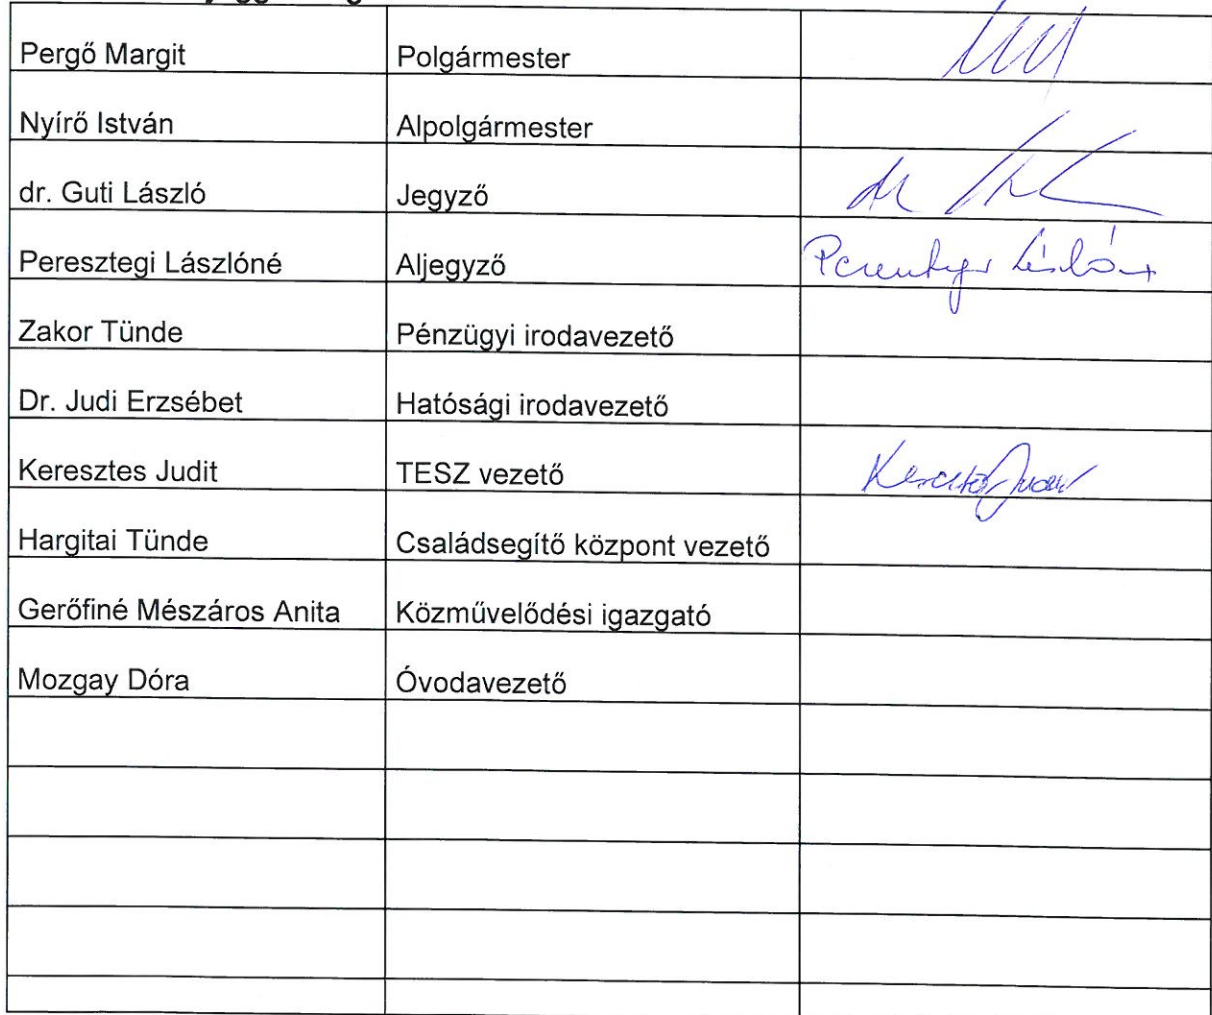 Pergő Margit Polgármester
Nyírő István Alpolgármester
dr. Guti László Jegyző dr
Peresztegi Lászlóné Aljegyző
Zakor Tünde Pénzügyi irodavezető
Dr. Judi Erzsébet Hatósági irodavezető
Keresztes Judit TESZ vezető
Hargitai Tünde Családsegítő központ vezető
Gerőfiné Mészáros Anita Közművelődési igazgató
Mozgay Dóra Óvodavezető